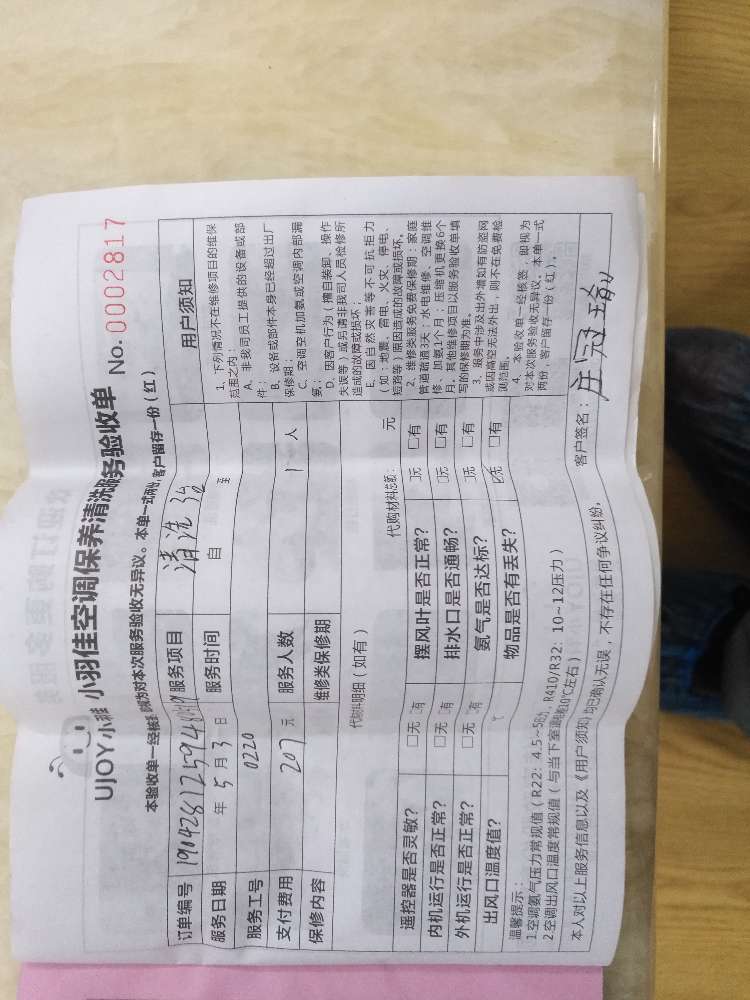 UJOY小羽 小羽佳空调保养清洗服务验收单 No. 0002817
本验收单一经核签即视为对本次服务验收无异议。本单一式两份,客户留存一份(红)
订单编号 服务项目 清洗3台
服务日期 年5月3日 服务时间 自 至
服务工号 0220
支付费用 207元 服务人数 1人
保修内容 维修类保修期
代购材料明细(如有) 代购材料总额: 元
遥控器是否灵敏? □无 □有 摆风叶是否正常? □无 □有
内机运行是否正常? □无 □有 排水口是否通畅? □无 □有
外机运行是否正常? □无 □有 氨气是否达标? □无 □有
出风口温度值? ℃ 物品是否有丢失? ☑无 □有
用户须知
1、下列情况不在维修项目的维保
范围之内:
A、非我司员工提供的设备或部
件;
B、设备或部件本身已经超过出厂
保修期;
C、空调空机加氨或空调内部漏
氨;
D、因客户行为(擅自装卸、操作
失误等)或另请非我司人员检修所
造成的故障或损坏;
E、因自然灾害等不可抗拒力
(如:地震、雷电、火灾、停电、
短路等)原因造成的故障或损坏。
2、维修类服务免费保修期:家庭
管道疏通3天;水电维修、空调维
修、加氨1个月;压缩机更换6个
月;其他维修项目以服务验收单填
写的保修期为准。
3、服务中涉及出外墙如有防盗网
或因高空无法外出,则不在免费检
测范围。
4、本验收单一经核签,即视为
对本次服务验收无异议。本单一式
两份,客户留存一份(红)。
温馨提示:
1空调氨气压力常规值(R22: 4.5~5压力, R410/R32: 10~12压力)
2空调出风口温度常规值(与当下室温相差10℃左右)
本人对以上服务信息以及《用户须知》均已确认无误,不存在任何争议纠纷。
客户签名: 庄冠瑜